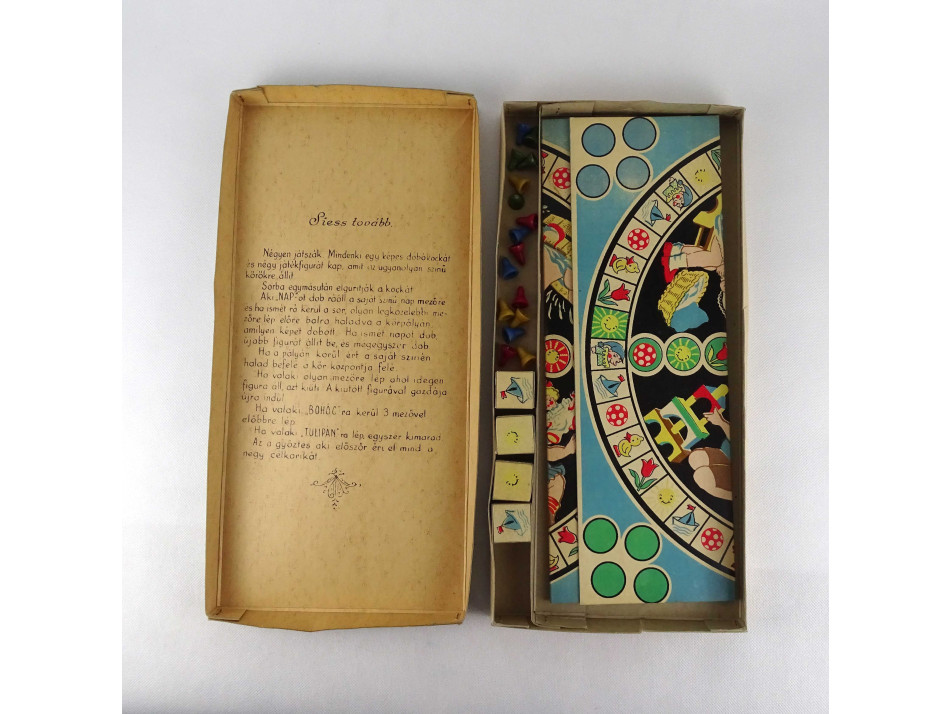 Siess tovább.
Négyen játszák. Mindenki egy képes dobókockát
és négy játékfigurát kap, amit az ugyanolyan színű
körökre állit.
Sorba egymásután elguritják a kockát.
Aki „NAP"-ot dob rááll a saját színű nap mezőre
és ha ismét rá kerül a sor, olyan legközelebbi me-
zőre lép előre balra haladva a körpályán,
amilyen képet dobott. Ha ismét napot dob,
újabb figurát állit be, és mégegyszer dob.
Ha a pályán körül ért a saját színén
halad befelé a kör központja felé.
Ha valaki olyan mezőre lép ahol idegen
figura áll, azt kiüti. A kiütött figurával gazdája
újra indul.
Ha valaki „BOHÓC"-ra kerül 3 mezővel
előbbre lép.
Ha valaki „TULIPÁN"-ra lép, egyszer kimarad.
Az a győztes aki először éri el mind a
négy célkarikát.